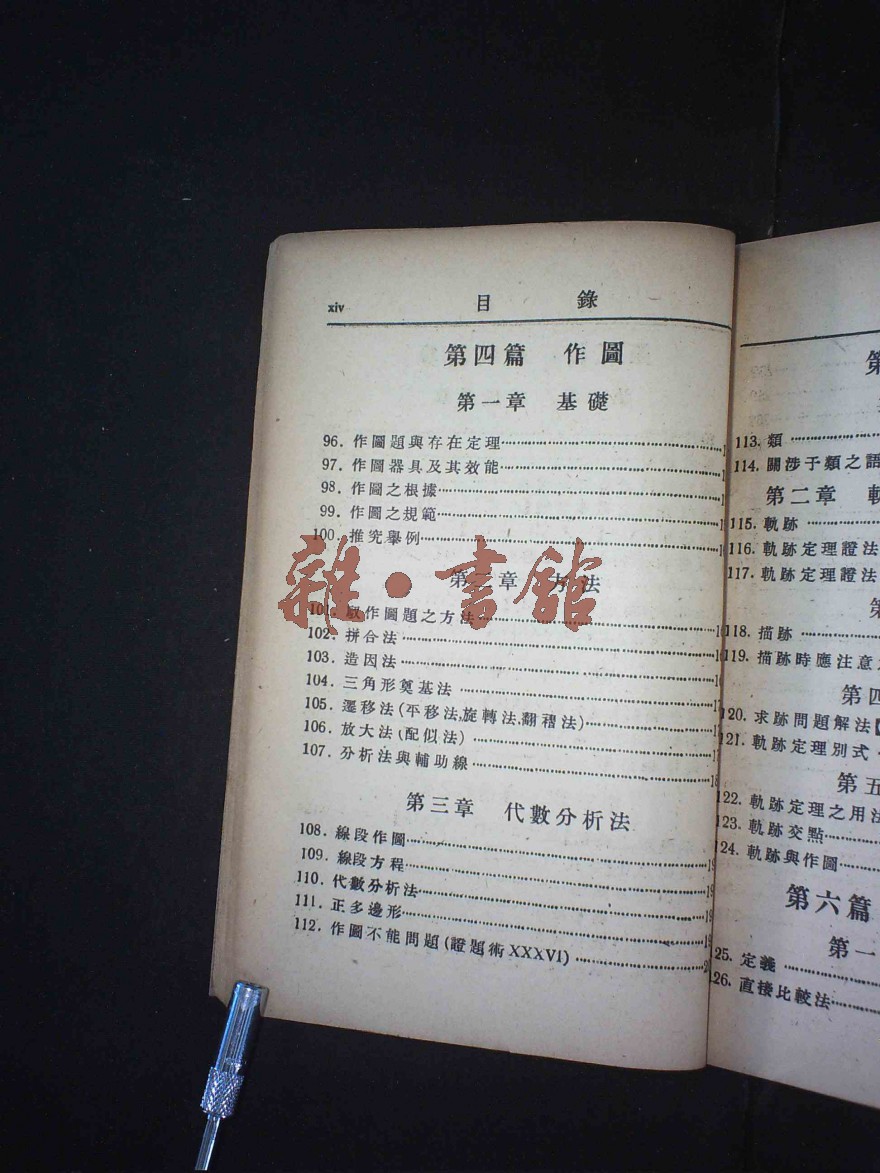 xiv 目 錄
第四篇 作圖
第一章 基礎
96. 作圖題與存在定理
97. 作圖器具及其效能
98. 作圖之根據
99. 作圖之規範
100. 推究舉例
第二章 方法
101. 作圖題之方法
102. 拼合法
103. 造因法
104. 三角形奠基法
105. 遷移法(平移法,旋轉法,翻褶法)
106. 放大法(配似法)
107. 分析法與輔助線
第三章 代數分析法
108. 線段作圖
109. 線段方程
110. 代數分析法
111. 正多邊形
112. 作圖不能問題(證題術XXXVI)
第
113. 類
114. 關涉于類之語
第二章 軌
115. 軌跡
116. 軌跡定理證法
117. 軌跡定理證法
第
118. 描跡
119. 描跡時應注意
第四
120. 求跡問題解法
121. 軌跡定理別式
第五
122. 軌跡定理之用法
123. 軌跡交點
124. 軌跡與作圖
第六篇
第一
125. 定義
126. 直接比較法
雜·書館